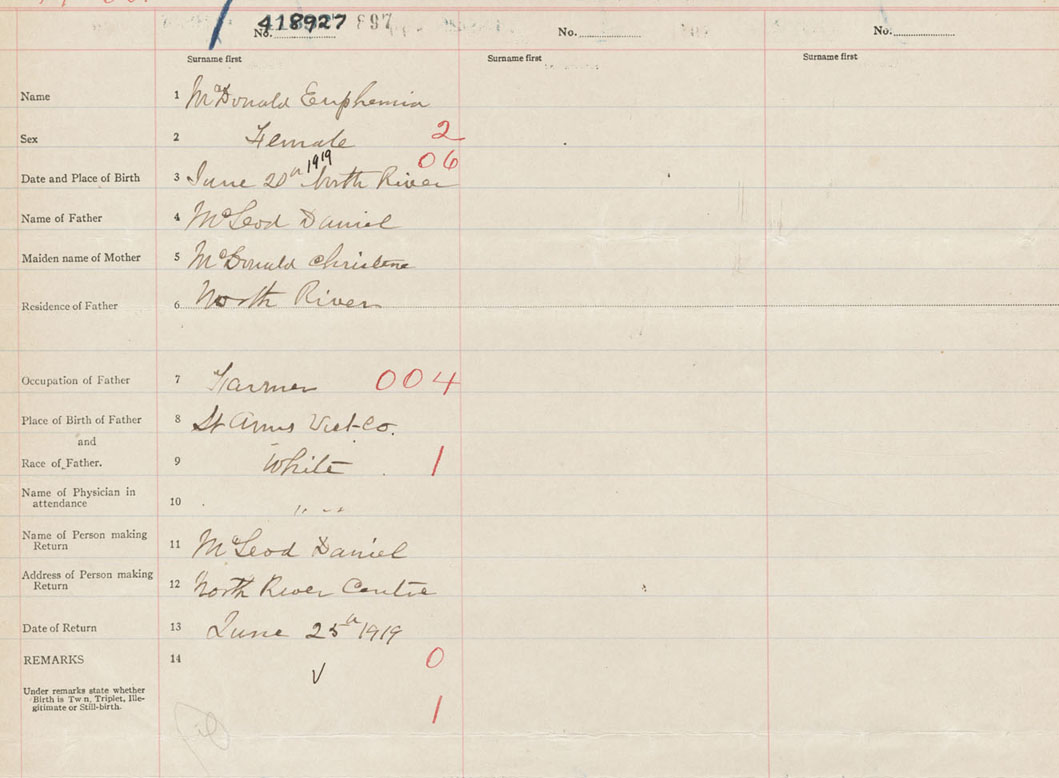 No. 418927
No.
No.
Surname first
Surname first
Surname first
Name 1 McDonald Euphemia
Sex 2 Female 2
06
Date and Place of Birth 3 June 20th 1919 North River
Name of Father 4 McLeod Daniel
Maiden name of Mother 5 McDonald Christene
Residence of Father 6 North River
Occupation of Father 7 Farmer 004
Place of Birth of Father 8 St Anns Vict-Co.
and
Race of Father. 9 White 1
Name of Physician in
attendance 10 " " "
Name of Person making
Return 11 McLeod Daniel
Address of Person making
Return 12 North River Centre
Date of Return 13 June 25th 1919
REMARKS 14 0
Under remarks state whether
Birth is Twn, Triplet, Ille-
gitimate or Still-birth.
1